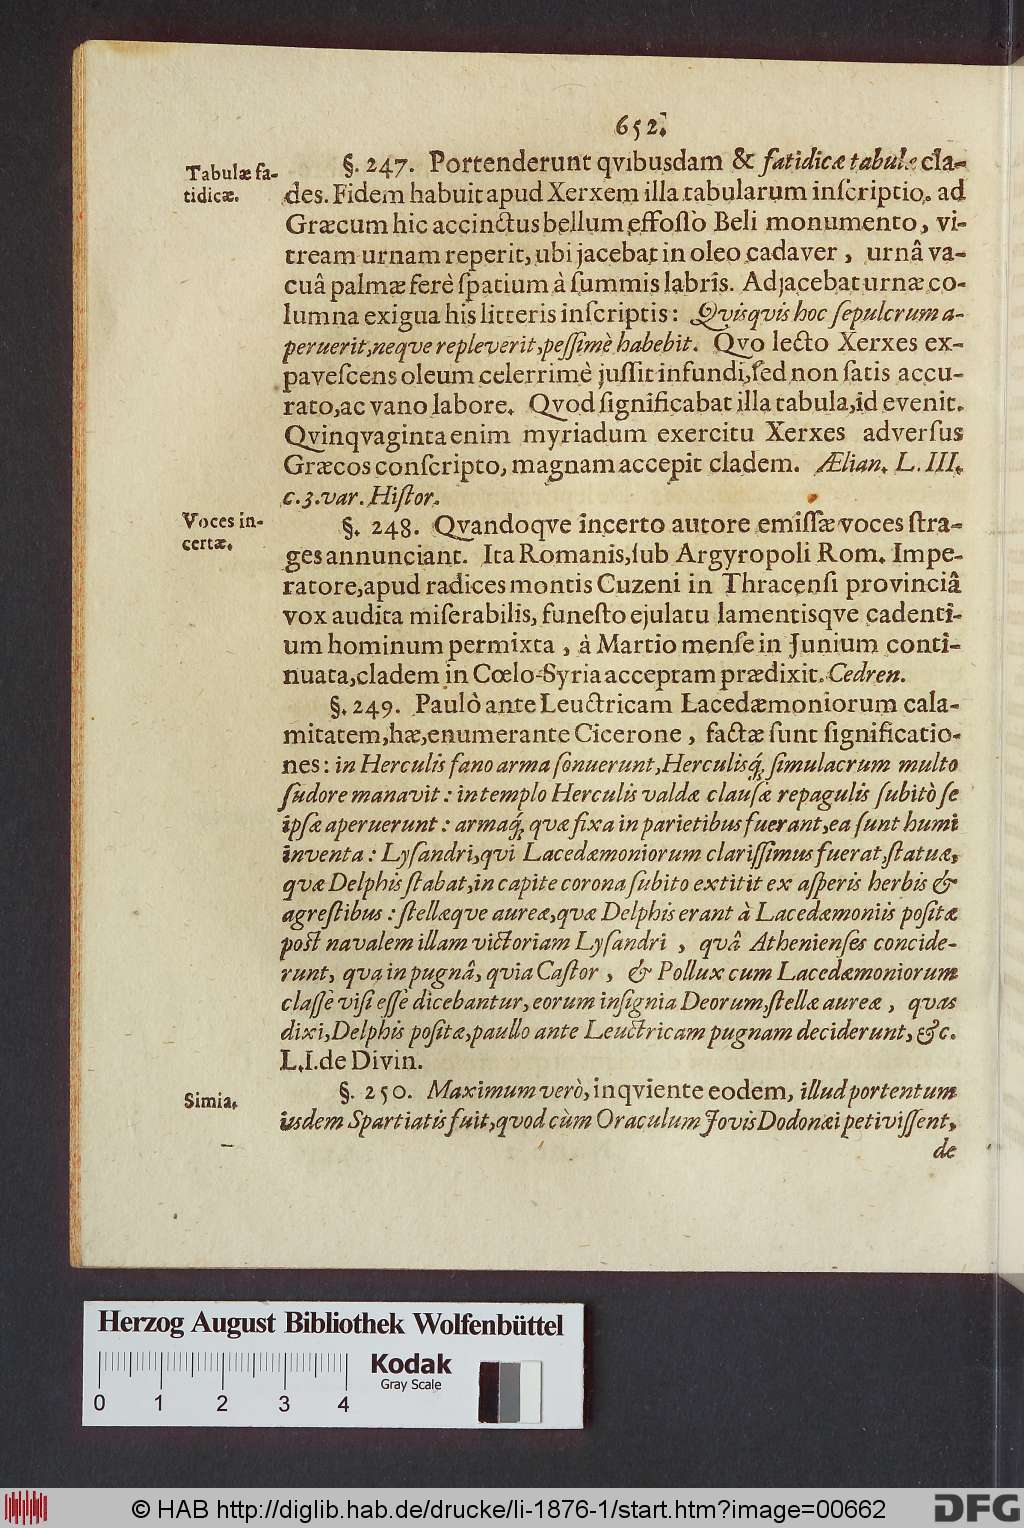 652.
Tabulæ fa-
tidicæ.
§. 247. Portenderunt qvibusdam & fatidicæ tabulæ cla-
des. Fidem habuit apud Xerxem illa tabularum inſcriptio. ad
Græcum hic accinctus bellum effoſſo Beli monumento, vi-
tream urnam reperit, ubi jacebat in oleo cadaver, urnâ va-
cuâ palmæ ferè ſpatium à ſummis labris. Adjacebat urnæ co-
lumna exigua his litteris inſcriptis: Qvisqvis hoc ſepulcrum a-
peruerit, neque repleverit, peſſimè habebit. Qvo lecto Xerxes ex-
paveſcens oleum celerrimè juſſit infundi, ſed non ſatis accu-
rato, ac vano labore. Qvod ſignificabat illa tabula, id evenit.
Qvinqvaginta enim myriadum exercitu Xerxes adverſus
Græcos conſcripto, magnam accepit cladem. Ælian. L. III.
c. 3. var. Hiſtor.
Voces in-
certæ.
§. 248. Qvandoqve incerto autore emiſſæ voces ſtra-
ges annunciant. Ita Romanis, ſub Argyropoli Rom. Impe-
ratore, apud radices montis Cuzeni in Thracenſi provinciâ
vox audita miſerabilis, funeſto ejulatu lamentisqve cadenti-
um hominum permixta, à Martio menſe in Junium conti-
nuata, cladem in Cœlo-Syria acceptam prædixit. Cedren.
§. 249. Paulò ante Leuctricam Lacedæmoniorum cala-
mitatem, hæ, enumerante Cicerone, factæ ſunt ſignificatio-
nes: in Herculis fano arma ſonuerunt, Herculisq́; ſimulacrum multo
ſudore manavit: in templo Herculis valdæ clauſæ repagulis ſubitò ſe
ipſæ aperuerunt: armaq́; quæ fixa in parietibus fuerant, ea ſunt humi
inventa: Lyſandri, qvi Lacedæmoniorum clariſſimus fuerat, ſtatuæ,
qvæ Delphis ſtabat, in capite corona ſubito extitit ex aſperis herbis &
agreſtibus: ſtellæque aureæ, qvæ Delphis erant à Lacedæmoniis poſitæ
poſt navalem illam victoriam Lyſandri, qvâ Athenienſes concide-
runt, qva in pugnâ, qvia Caſtor, & Pollux cum Lacedæmoniorum
claſſe viſi eſſe dicebantur, eorum inſignia Deorum, ſtellæ aureæ, qvas
dixi, Delphis poſitæ, paullo ante Leuctricam pugnam deciderunt, &c.
L. I. de Divin.
Simia.
§. 250. Maximum verò, inqviente eodem, illud portentum
iisdem Spartiatis fuit, qvod cùm Oraculum Jovis Dodonæi petiviſſent,
de
Herzog August Bibliothek Wolfenbüttel
Kodak
Gray Scale
0 1 2 3 4
© HAB http://diglib.hab.de/drucke/li-1876-1/start.htm?image=00662
DFG